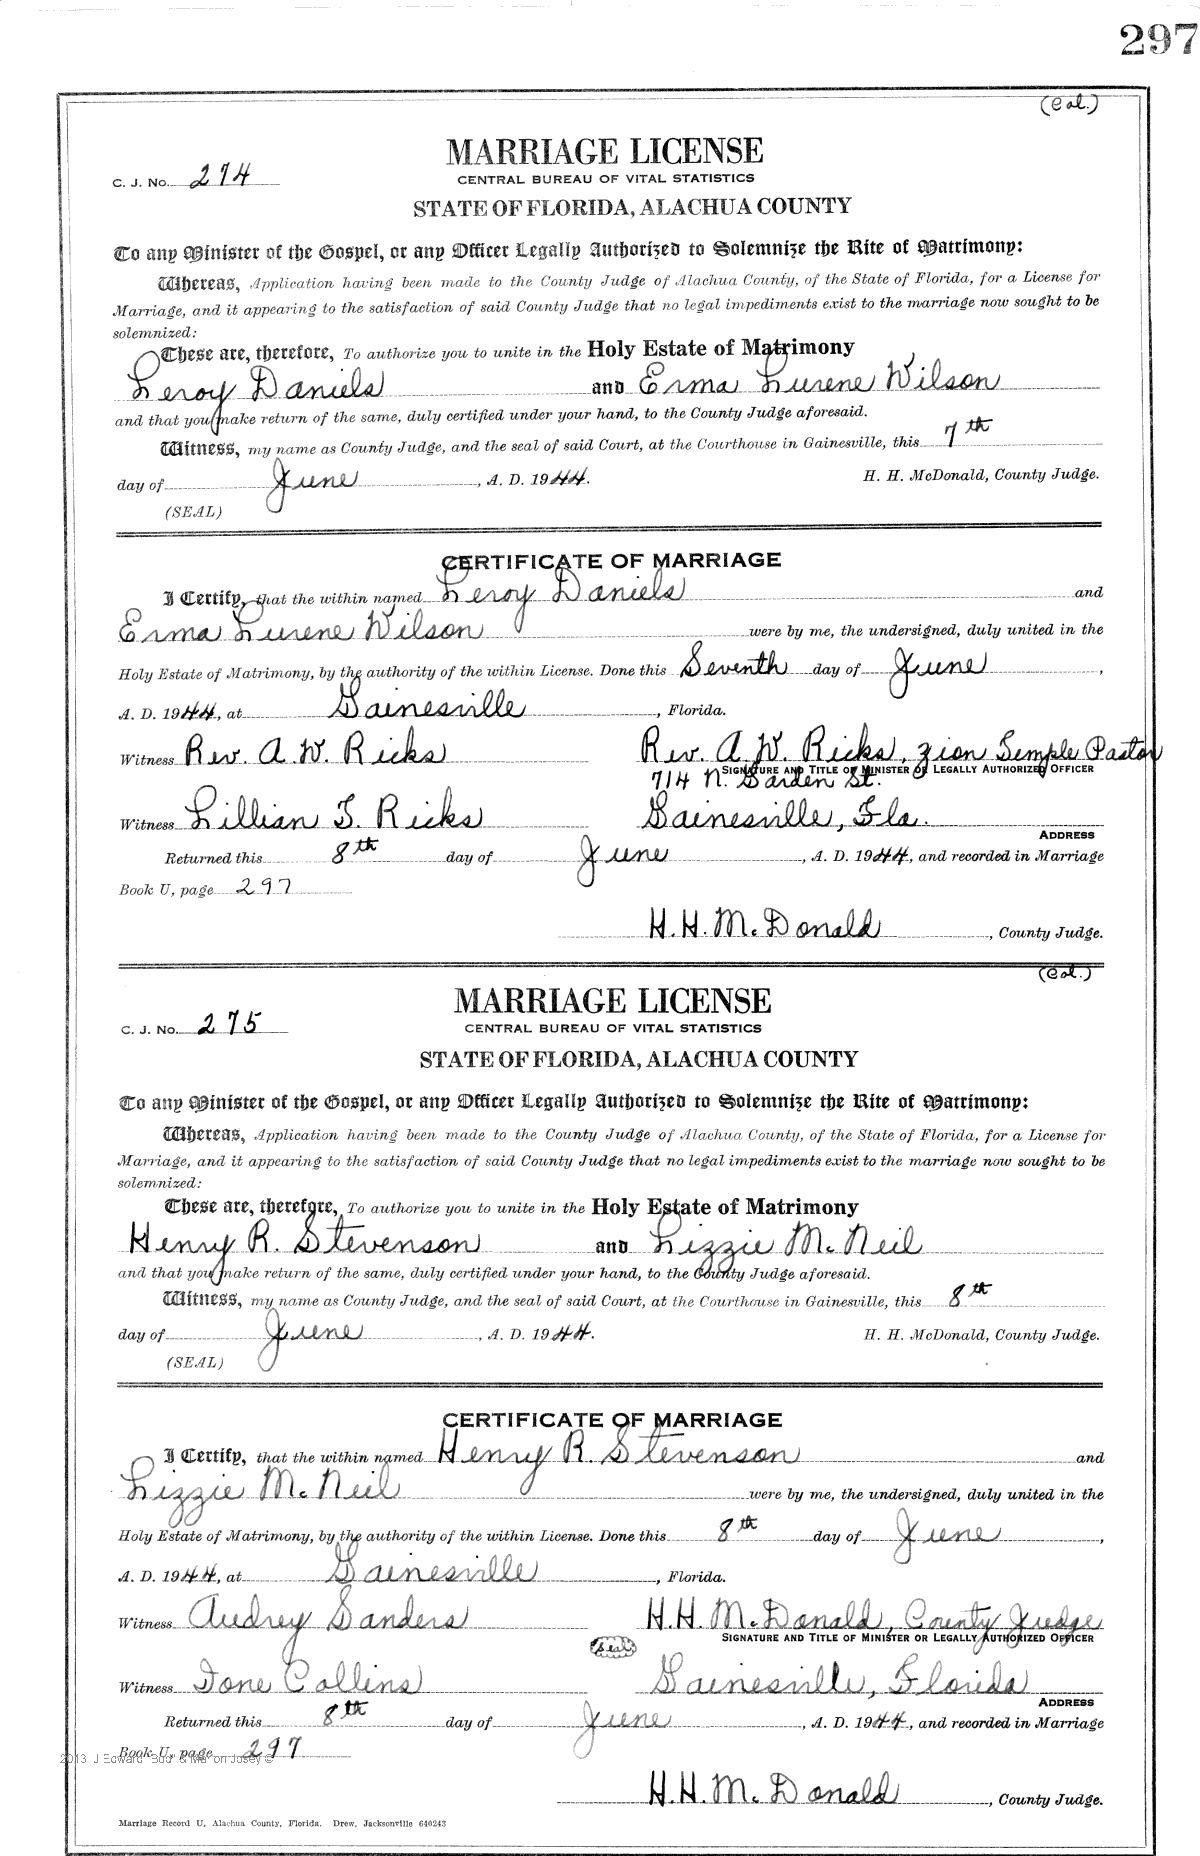 297
(Col.)
MARRIAGE LICENSE
C. J. No. 274
CENTRAL BUREAU OF VITAL STATISTICS
STATE OF FLORIDA, ALACHUA COUNTY
To any Minister of the Gospel, or any Officer Legally Authorized to Solemnize the Rite of Matrimony:
Whereas, Application having been made to the County Judge of Alachua County, of the State of Florida, for a License for
Marriage, and it appearing to the satisfaction of said County Judge that no legal impediments exist to the marriage now sought to be
solemnized:
These are, therefore, To authorize you to unite in the Holy Estate of Matrimony
Leroy Daniels and Erma Lurene Wilson
and that you make return of the same, duly certified under your hand, to the County Judge aforesaid.
Witness, my name as County Judge, and the seal of said Court, at the Courthouse in Gainesville, this 7th
day of June, A. D. 1944. H. H. McDonald, County Judge.
(SEAL)
CERTIFICATE OF MARRIAGE
I Certify, that the within named Leroy Daniels and
Erma Lurene Wilson were by me, the undersigned, duly united in the
Holy Estate of Matrimony, by the authority of the within License. Done this Seventh day of June,
A. D. 1944, at Gainesville, Florida.
Witness Rev. A. W. Ricks Rev. A. W. Ricks, Zion Temple Pastor
SIGNATURE AND TITLE OF MINISTER OR LEGALLY AUTHORIZED OFFICER
714 N. Garden St.
Witness Lillian T. Ricks Gainesville, Fla.
ADDRESS
Returned this 8th day of June, A. D. 1944, and recorded in Marriage
Book U, page 297
H. H. McDonald, County Judge.
(Col.)
MARRIAGE LICENSE
C. J. No. 275
CENTRAL BUREAU OF VITAL STATISTICS
STATE OF FLORIDA, ALACHUA COUNTY
To any Minister of the Gospel, or any Officer Legally Authorized to Solemnize the Rite of Matrimony:
Whereas, Application having been made to the County Judge of Alachua County, of the State of Florida, for a License for
Marriage, and it appearing to the satisfaction of said County Judge that no legal impediments exist to the marriage now sought to be
solemnized:
These are, therefore, To authorize you to unite in the Holy Estate of Matrimony
Henry R. Stevenson and Lizzie McNeil
and that you make return of the same, duly certified under your hand, to the County Judge aforesaid.
Witness, my name as County Judge, and the seal of said Court, at the Courthouse in Gainesville, this 8th
day of June, A. D. 1944. H. H. McDonald, County Judge.
(SEAL)
CERTIFICATE OF MARRIAGE
I Certify, that the within named Henry R. Stevenson and
Lizzie McNeil were by me, the undersigned, duly united in the
Holy Estate of Matrimony, by the authority of the within License. Done this 8th day of June,
A. D. 1944, at Gainesville, Florida.
Witness Audrey Sanders H. H. McDonald, County Judge
SIGNATURE AND TITLE OF MINISTER OR LEGALLY AUTHORIZED OFFICER
Seal
Witness Ione Collins Gainesville, Florida
ADDRESS
Returned this 8th day of June, A. D. 1944, and recorded in Marriage
Book U, page 297
2013 J Edward "Bud" & Marion Josey ©
H. H. McDonald, County Judge.
Marriage Record U, Alachua County, Florida. Drew, Jacksonville 640243